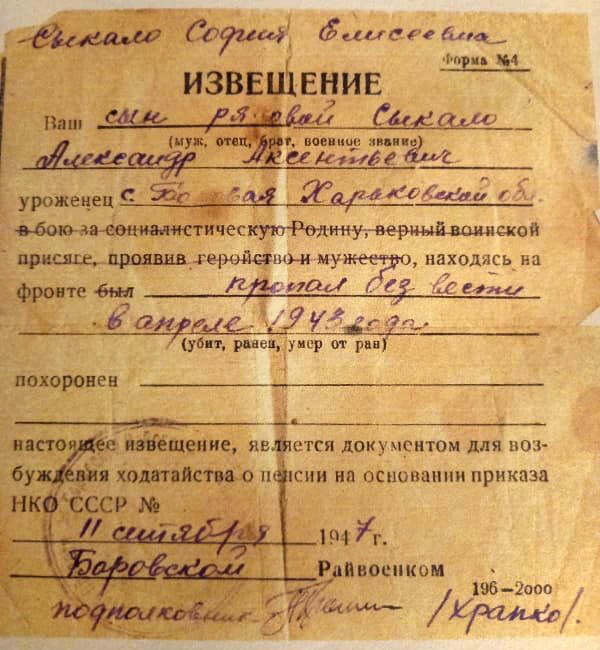 Сыкало София Елисеевна
Форма №4
ИЗВЕЩЕНИЕ
Ваш сын ря овой Сыкало
(муж, отец, брат, военное звание)
Александр Аксентьевич
уроженец с. Бо вая Харьковской обл.
в бою за социалистическую Родину, верный воинской
присяге, проявив геройство и мужество, находясь на
фронте был пропал без вести
в апреле 1943 года
(убит, ранен, умер от ран)
похоронен
настоящее извещение, является документом для воз-
буждения ходатайства о пенсии на основании приказа
НКО СССР №
11 сентября 1947 г.
Боровской Райвоенком
196–2000
подполковник /Храпко/.